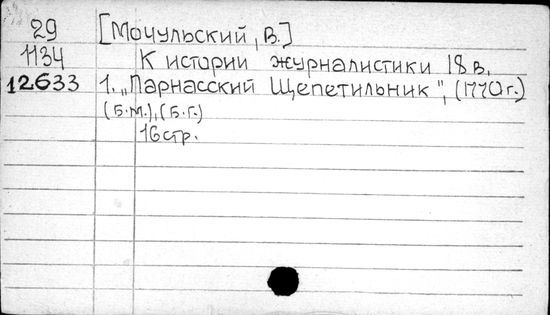 29 [Мочульский, В.]
1134 К истории журналистики 18 в.
12633 1. „Парнасский Щепетильник", (1770 г.)
(Б.м.), (Б.г.)
16 стр.